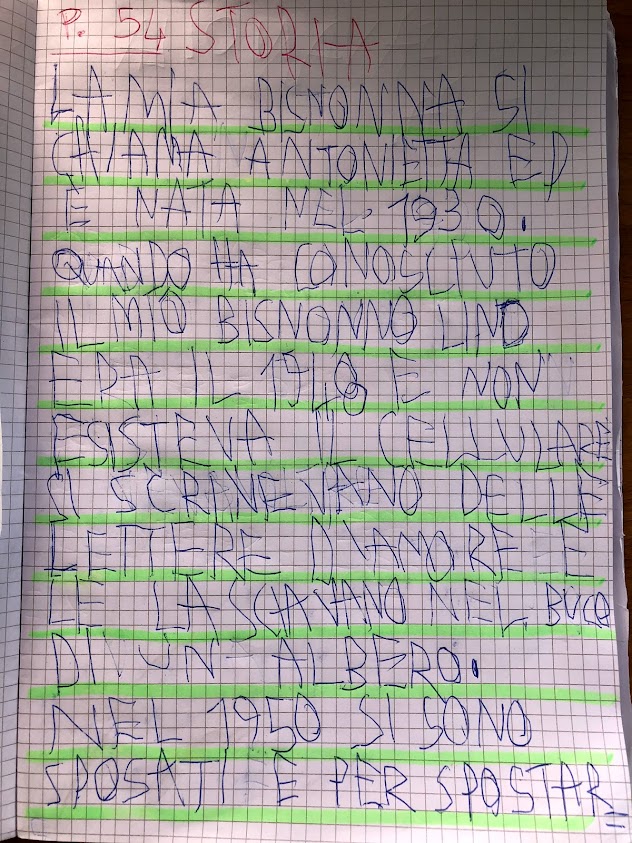 P. 54 STORIA
LA MIA BISNONNA SI
CHIAMA ANTONIETTA ED
È NATA NEL 1930.
QUANDO HA CONOSCIUTO
IL MIO BISNONNO LINO
ERA IL 1948 E NON
ESISTEVA IL CELLULARE
SI SCRIVEVANO DELLE
LETTERE D'AMORE E
LE LASCIAVANO NEL BUCO
DI UN ALBERO.
NEL 1950 SI SONO
SPOSATI E PER SPOSTAR=